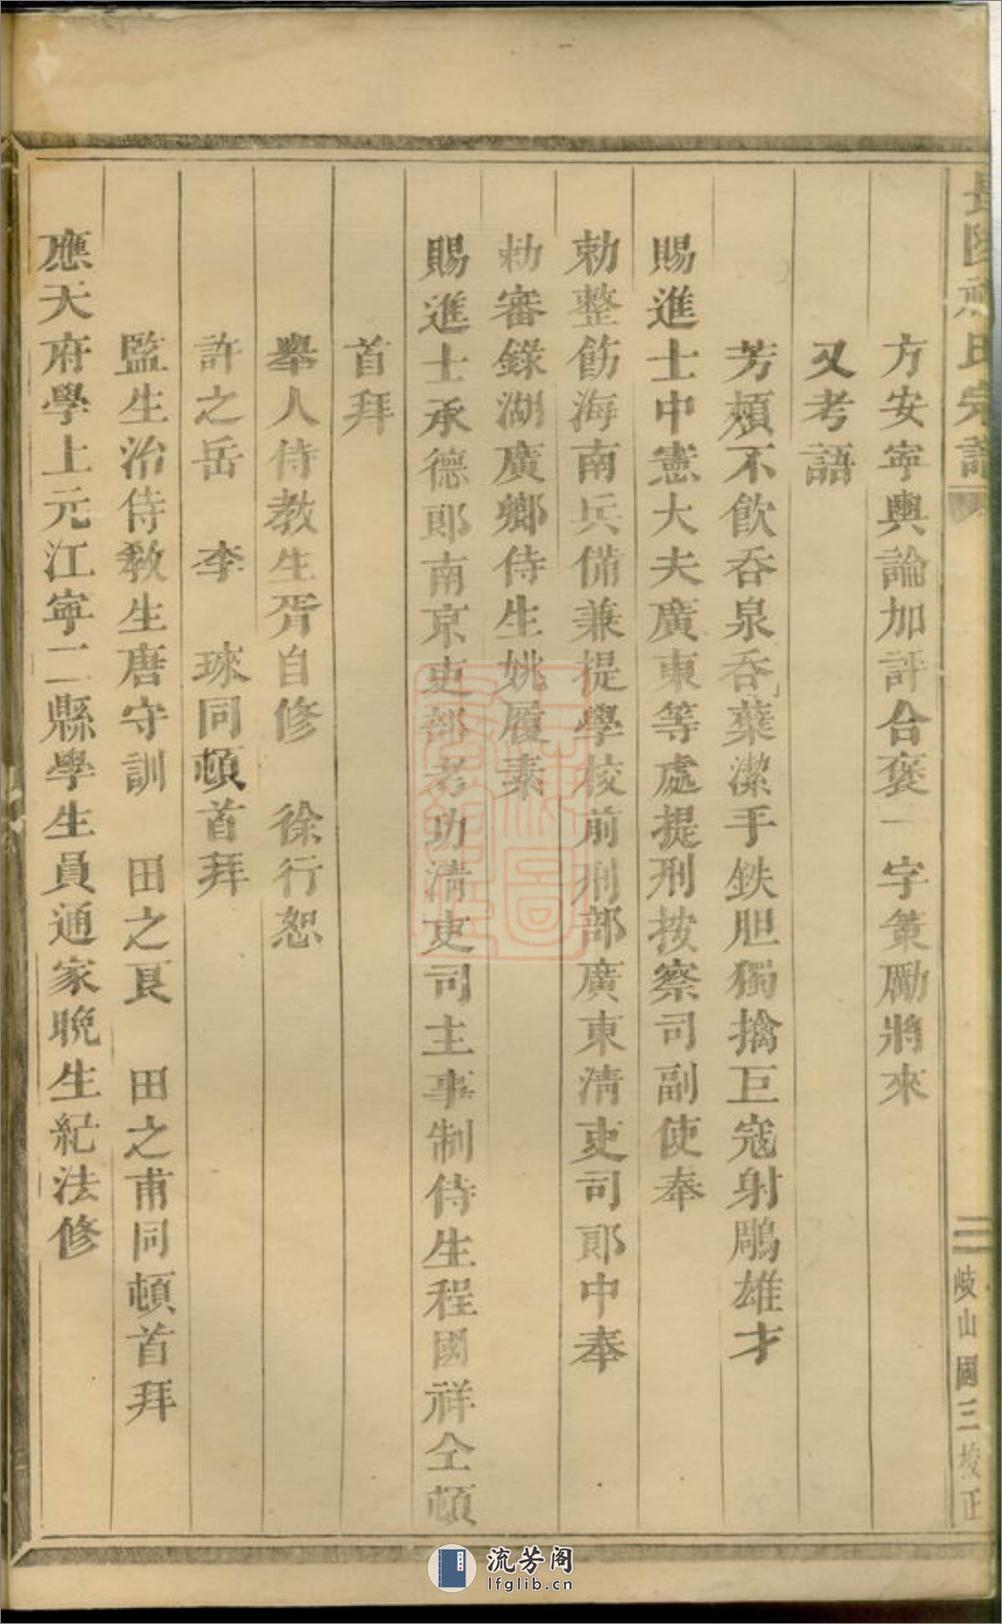 方安寧輿論加評合褒一字策勵將來
又考語
芳頰不飲吞泉吞蘗潔手鉄胆獨擒巨寇射鵰雄才
賜進士中憲大夫廣東等處提刑按察司副使奉
勅整飭海南兵備兼提學校前刑部廣東淸吏司郎中奉
勅審錄湖廣鄉侍生姚履素
賜進士承德郎南京吏部考功淸吏司主事制侍生程國祥仝頓
首拜
舉人侍教生胥自修 徐行恕
許之岳 李 球同頓首拜
監生治侍教生唐守訓 田之艮 田之甫同頓首拜
應天府學上元江寧二縣學生員通家晩生紀法修
氏宗譜
二 岐山國三校正
流芳阁
lfglib.cn